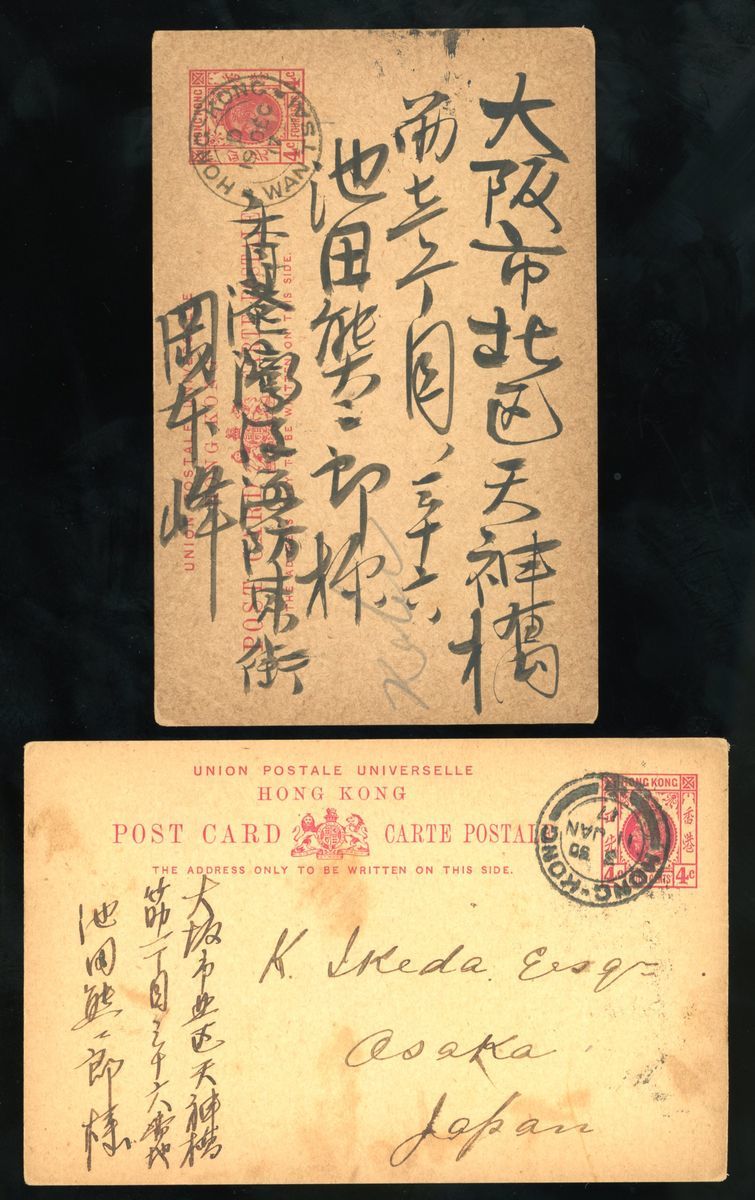 大阪市北区天神橋
池田熊二郎様
香港湾仔海防東街
岡本峰
HONG KONG
4c
HONG KONG
WANTSAI
UNION POSTALE UNIVERSELLE
HONG KONG
POST CARD CARTE POSTALE
THE ADDRESS ONLY TO BE WRITTEN ON THIS SIDE.
UNION POSTALE UNIVERSELLE
HONG KONG
POST CARD CARTE POSTAL
THE ADDRESS ONLY TO BE WRITTEN ON THIS SIDE.
HONG KONG
香港
4c
4c
HONG-KONG
JAN
17
K. Ikeda Esqr
Osaka
Japan
大坂市北区天神橋
筋一丁目三十六番地
池田熊二郎様